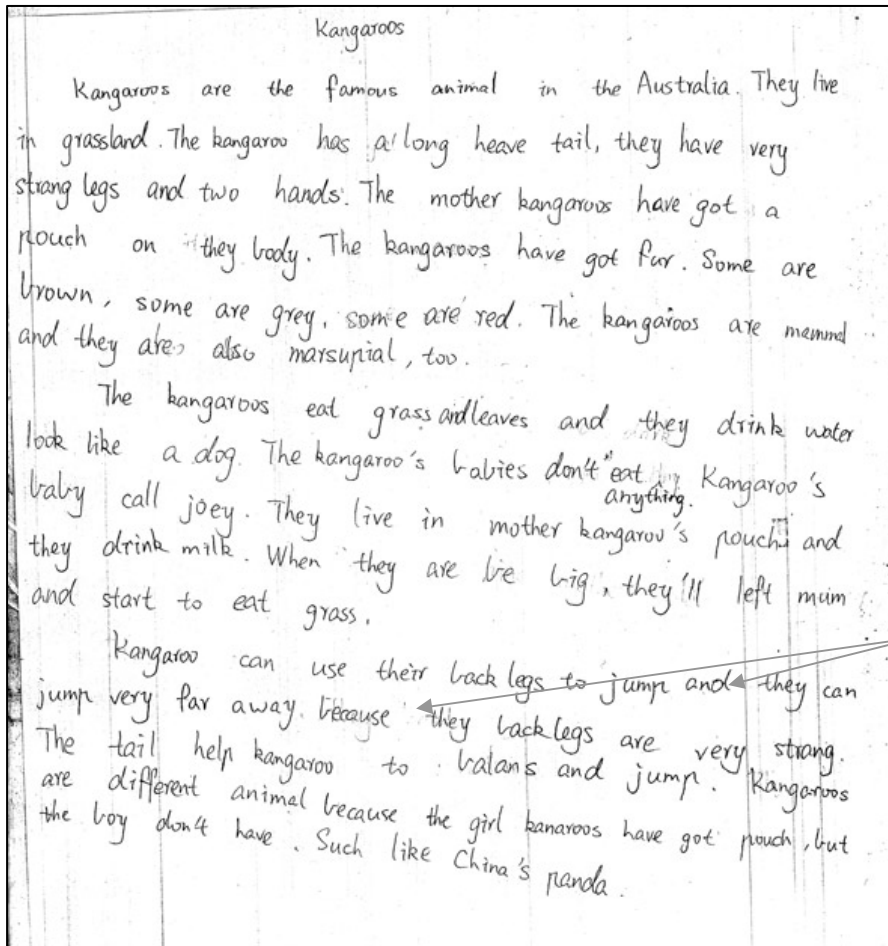 Kangaroos
Kangaroos are the famous animal in the Australia. They live
in grassland. The kangaroo has a long heave tail, they have very
strang legs and two hands. The mother kangaroos have got a
pouch on they body. The kangaroos have got fur. Some are
brown, some are grey, some are red. The kangaroos are memmal
and they are also marsupial, too.
The kangaroos eat grass and leaves and they drink water
look like a dog. The kangaroo's babies don't eat anything. Kangaroo's
baby call joey. They live in mother kangaroo's pouch and
they drink milk. When they are be big, they'll left mum
and start to eat grass.
Kangaroo can use their back legs to jump and they can
jump very far away. because they back legs are very strang.
The tail help kangaroo to balans and jump. Kangaroos
are different animal because the girl kanaroos have got pouch, but
the boy don't have. Such like China's panda.